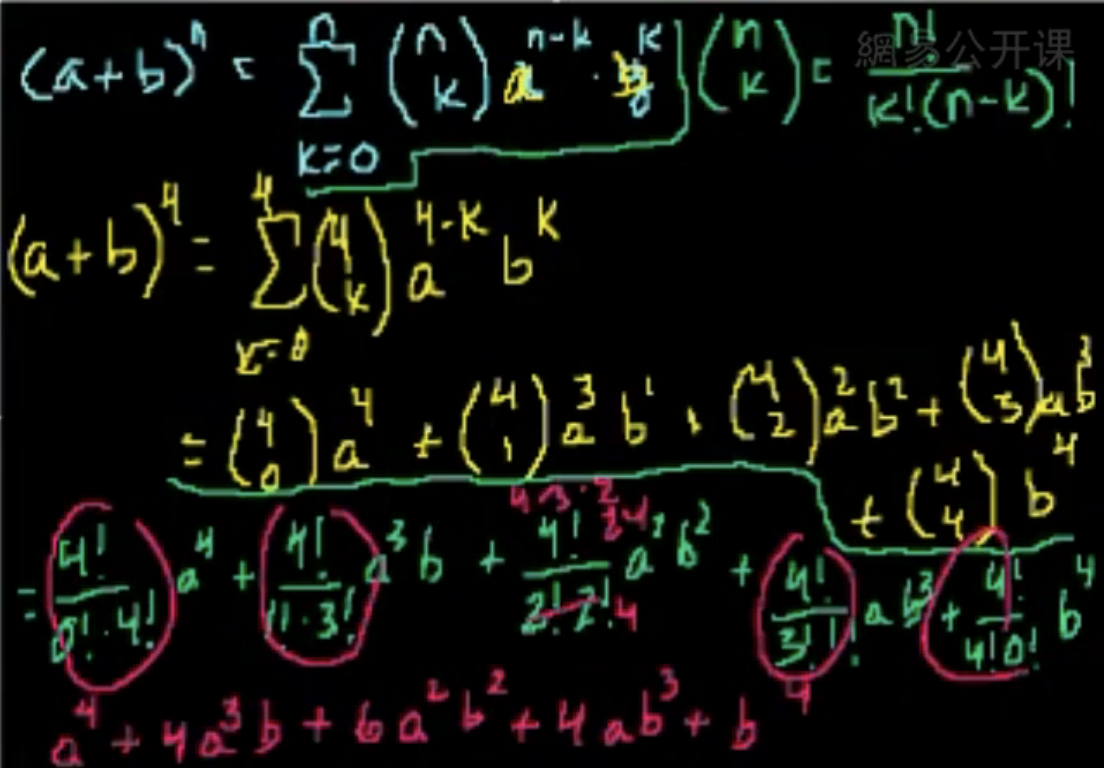 (a+b)^n = \sum_{k=0}^{n} \binom{n}{k} a^{n-k} \cdot b^k  \binom{n}{k} = \frac{n!}{k!(n-k)!}
網易公开课
(a+b)^4 = \sum_{k=0}^{4} \binom{4}{k} a^{4-k} b^k
= \binom{4}{0} a^4 + \binom{4}{1} a^3 b^1 + \binom{4}{2} a^2 b^2 + \binom{4}{3} a b^3
+ \binom{4}{4} b^4
4·3·2
24
= \frac{4!}{0!·4!} a^4 + \frac{4!}{1!·3!} a^3 b + \frac{4!}{2!·2!} a^2 b^2 + \frac{4!}{3!1!} a b^3 + \frac{4!}{4!0!} b^4
4
a^4 + 4a^3 b + 6a^2 b^2 + 4ab^3 + b^4